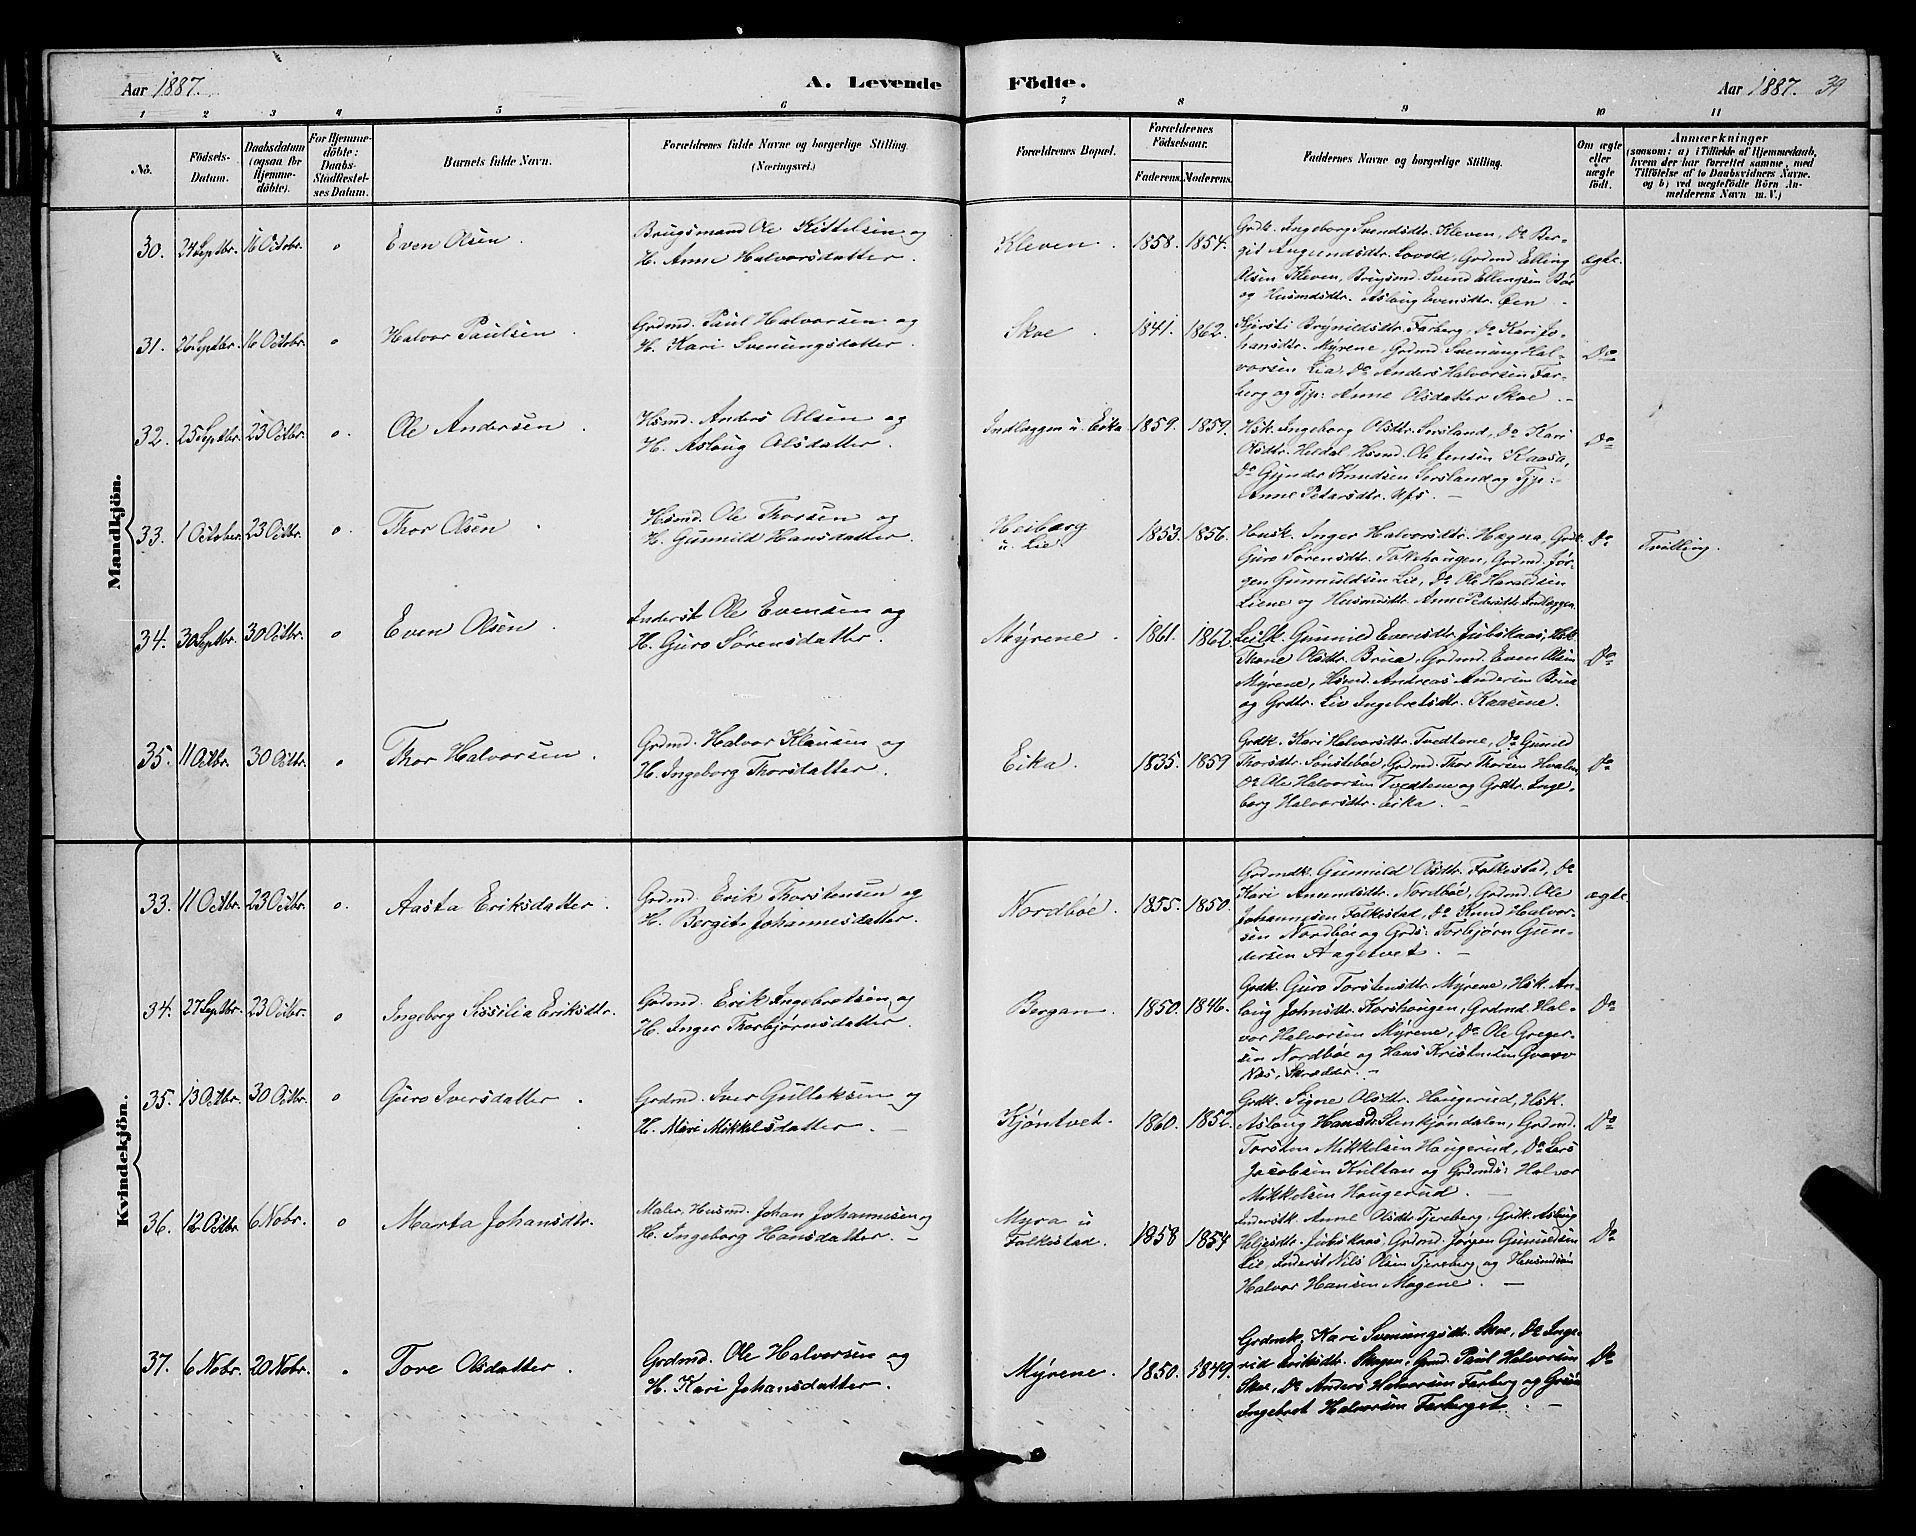 Aar 1887. A. Levende Födte. Aar 1887. 39
1 2 3 4 5 6 7 8 9 10 11
No.
Födsels-Datum.
Daabsdatum (ogsaa for Hjemmedöbte).
For Hjemmedöbte: Daabs-Stadfæstelses Datum.
Barnets fulde Navn.
Forældrenes fulde Navne og borgerlige Stilling. (Næringsvei.)
Forældrenes Bopæl.
Forældrenes Födselsaar.
Faderens. Moderens.
Faddernes Navne og borgerlige Stilling.
Om ægte eller uægte födt.
Anmærkninger
(saasom: a) i Tilfælde af Hjemmedaab,
hvem der har forrettet samme, med
Tilföielse af to Daabsvidners Navne.
og b) ved uægtefödte Börn An-
melderens Navn m. V.)
Mandkjön.
30. 24 Septbr. 16 Octobr. o Even Olsen. Brugsmand Ole Kittelsen og
H. Anne Halvorsdatter. Kleven. 1858. 1854. ægte.
Grdk. Ingeborg Svendsdtr. Kleven, Do Ber-
git Amundsdtr. Lovold, Grdmd. Elling
Olsen Kleven, Brugsmd. Svend Ellingsen Böe
og Husmdsdtr. Aslaug Evensdtr. Een.
31. 26 Septbr. 16 Octobr. o Halvor Paulsen. Grdmd. Paul Halvorsen og
H. Kari Svenungsdatter. Skoe. 1841. 1862. Do
Kjersti Brynildsdtr. Farberg, Do Kari Jo-
hansdtr. Myrene, Grdmd. Svenung Hal-
vorsen Lia, Do Anders Halvorsen Far-
berg og Tjp: Anne Olsdatter Skoe.
32. 25 Septbr. 23 Octbr. o. Ole Andersen. Hsmd. Anders Olsen og
H. Aslaug Olsdatter. Indlæggen u. Eika 1859. 1859. Do
Hsk. Ingeborg Olsdtr. Sersland, Do Kari
Olsdtr. Hesdal, Hsmd. Ole Jensen Kaasa,
Do Gunder Knudsen Sersland og Tjp:
Anne Petersdtr. Ufs.
33. 1 October. 23 Octbr. o. Thor Olsen. Hsmd. Ole Thorsen og
H. Gunnild Hansdatter. Heiberg
u. Lie. 1853. 1856. Do Tvilling.
Husk. Inger Halvorsdtr. Hægna, Grdk
Guro Sörensdtr. Folkehaugen, Grdmd. Jör-
gen Gunnuldsen Lie, Do Ole Haraldsen
Liene og Husmdsdtr. Anne Pedersdtr. Indlæggen.
34. 30 Septbr. 30 Octbr. o Even Olsen. Inderst Ole Evensen og
H. Guro Sörensdatter. Myrene. 1861. 1862. Do
Leilk. Gunnild Evensdtr. Jubskaas, Hsk
Thone Olsdtr. Brua, Grdmd. Even Olsen
Myrene, Hsmd. Andreas Andersen Brua
og Grdtr. Liv Ingebretsdtr. Kaasene.
35. 11 Octbr. 30 Octbr. o Thor Halvorsen. Grdmd. Halvor Klausen og
H. Ingeborg Thorsdatter. Eika. 1835. 1859 Do
Grdk. Kari Halvorsdtr. Tvedtene, Do Gunild
Thorsdtr. Sönsteböe, Grdmd. Thor Thorsen Hvalen,
Do Ole Halvorsen Tvedtene og Grdtr. Inge-
borg Halvorsdtr. Eika.
Kvindekjön.
33. 11 Octbr. 23 Octbr. o. Aasta Eriksdatter. Grdmd. Erik Thorstensen og
H. Bergit Johannesdatter. Nordböe. 1855. 1850. ægte.
Grdmdk. Gunnild Olsdtr. Folkestad, Do
Kari Amundsdtr. Nordböe, Grdmd. Ole
Johannesen Folkestad, Do Knud Halvor-
sen Nordböe og Grds: Torbjörn Gun-
dersen Aagetvet.
34. 27 Septbr. 23 Octbr. o Ingeborg Sissilia Eriksdtr. Grdmd. Erik Ingebretsen og
H. Inger Thorbjörnsdatter. Bergan. 1850. 1846. Do
Grdk. Guro Torstensdtr. Myrene, Hsk. As-
laug Johnsdtr. Korshaugen, Grdmd. Hal-
vor Halvorsen Myrene, Do Ole Greger-
sen Nordböe og Hans Kristensen Grave
Næs, Skrædder.
35. 13 Octbr. 30 Octbr. o Guro Iversdatter. Grdmd. Iver Gulleksen og
H. Mari Mikkelsdatter. Kjöntvet. 1860. 1852. Do
Grdk. Signe Olsdtr. Haugerud, Hsk.
Aslaug Hansdtr. Stenkjöndalen, Grdmd.
Torsten Mikkelsen Haugerud, Do Lars
Jacobsen Kultan og Grdmds: Halvor
Mikkelsen Haugerud.
36. 12 Octbr. 6 Nobr. o Marta Johansdtr. Maler, Husmd. Johan Johannesen og
H. Ingeborg Hansdatter. Myra u
Folkestad. 1858 1854 Do
Inderstk. Anne Olsdtr. Tjereberg, Grdk. Aslaug
Heljesdtr. Jubskaas, Grdmd. Jörgen Gunuldsen
Lie, Inderst Nils Olsen Tjereberg og Husmdsön
Halvor Hansen Mogene.
37. 6 Nobr. 20 Nobr. o Tore Olsdatter. Grdmd. Ole Halvorsen og
H. Kari Johansdatter. Myrene. 1850. 1849. Do
Grdmk. Kari Svenungsdtr. Skoe, Do Inge-
rid Eriksdtr. Skogen, Grmd. Paul Halvorsen
Skoe, Do Anders Halvorsen Farberg og Grsön
Ingebret Halvorsen Farberget.